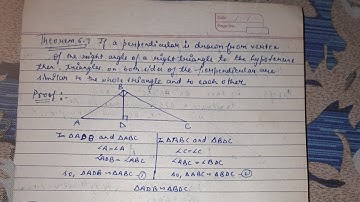 Date
Page No.
Theorem 6.7 If a perpendicular is drawn from vertex
of the right angle of a right triangle to the hypotenuse
then triangles on both sides of the perpendicular are
similar to the whole triangle and to each other
Proof:
B
A D C
In ΔADB and ΔABC
∠A=∠A
∠ADB = ∠ABC
so, ΔADB ~ ΔABC - ①
In ΔABC and ΔBDC
∠C=∠C
∠ABC = ∠BDC
so, ΔABC ~ ΔBDC - ②
ΔADB ~ ΔBDC